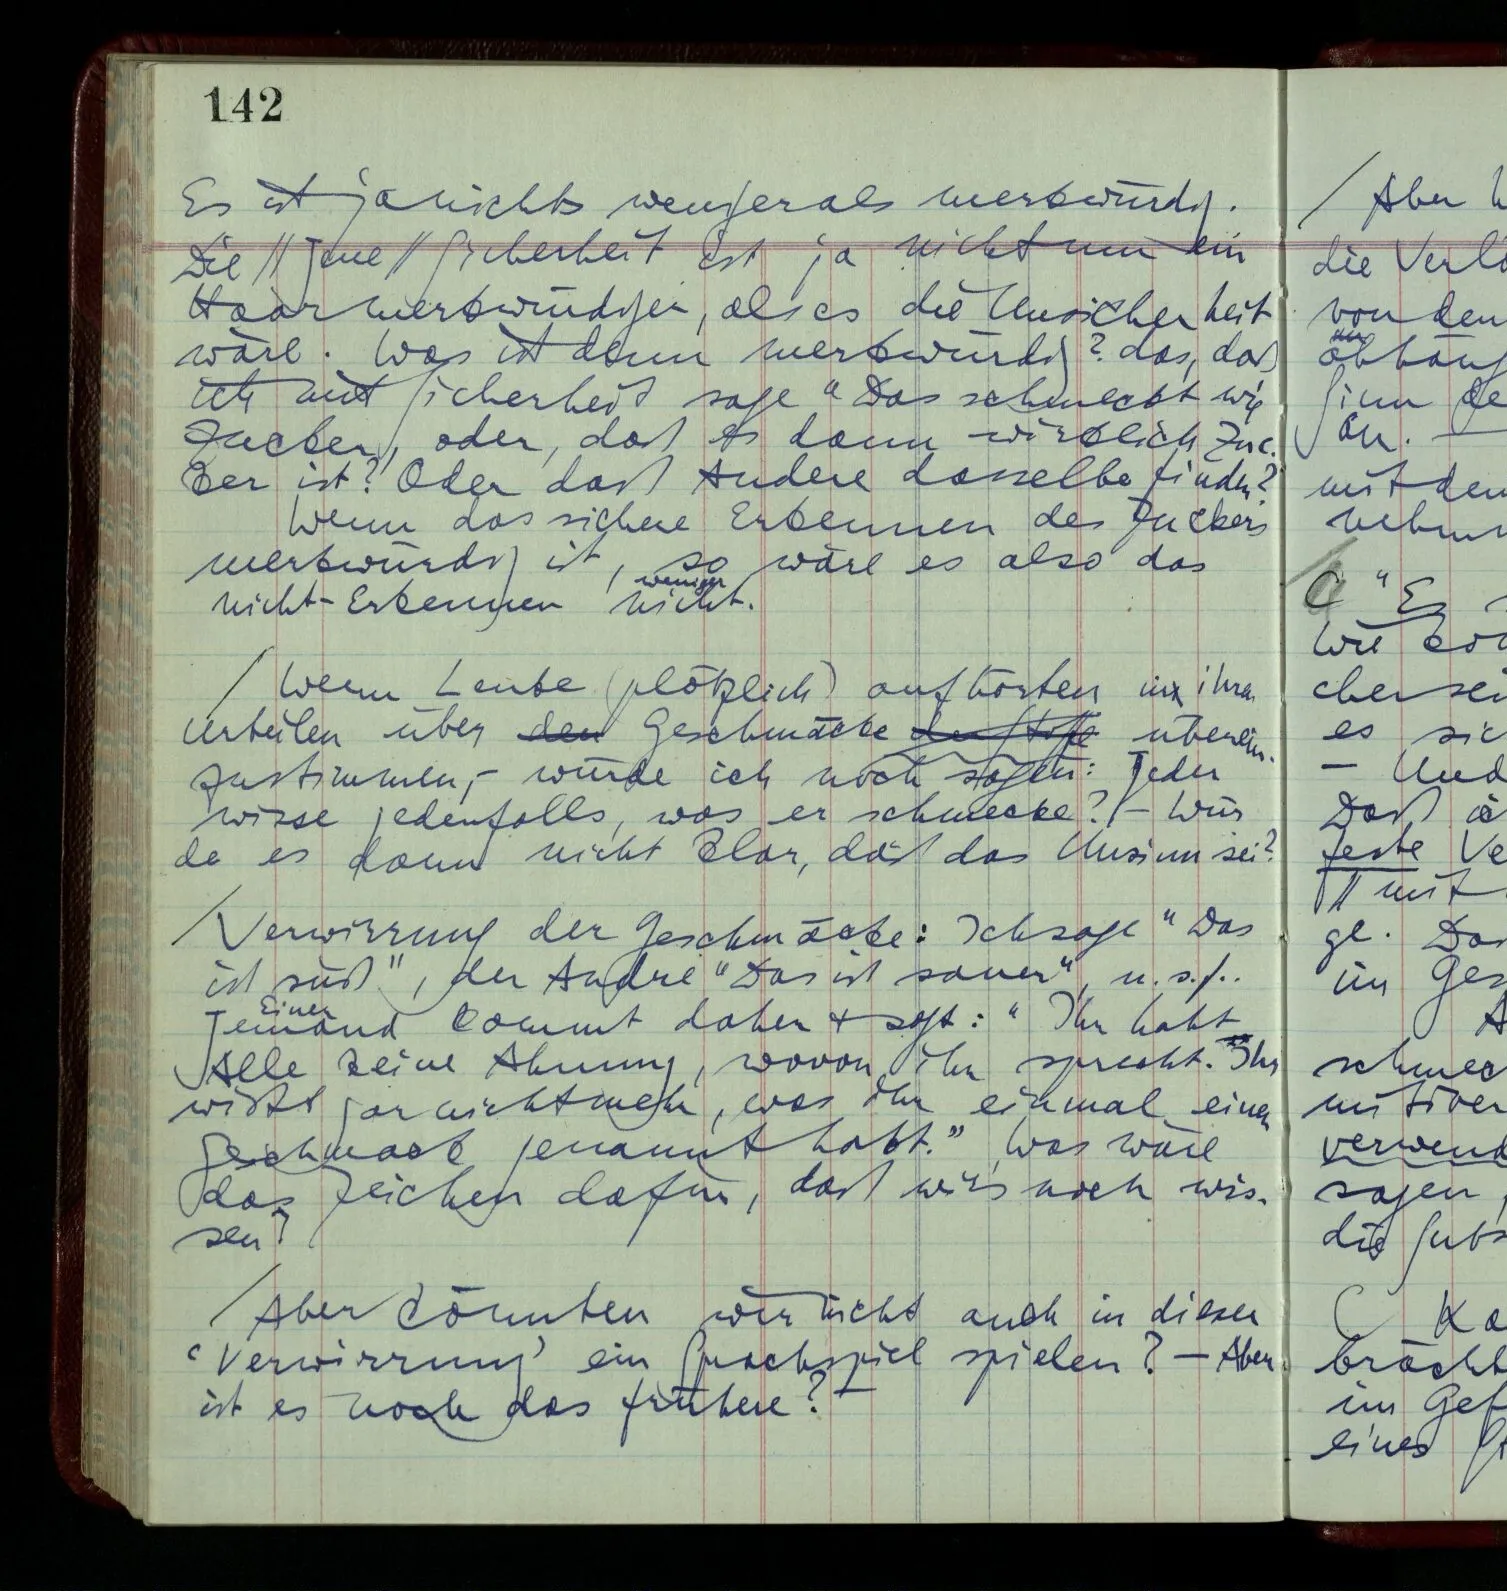 142
Es ist ja nichts weniger als merkwürdig.
Die // Jene // Sicherheit ist ja nicht um ein
Haar merkwürdiger, als es die Unsicherheit
wäre. Was ist denn merkwürdig? das, daß
ich mit Sicherheit sage "Das schmeckt wie
Zucker", oder, daß es dann wirklich Zuc-
ker ist? Oder daß Andere dasselbe finden?
Wenn das sichere Erkennen des Zuckers
merkwürdig ist, so wäre es also das
weniger
nicht-Erkennen nicht.
/ Wenn Leute (plötzlich) aufhörten in ihren
Urteilen über den Geschmäcke überein-
zustimmen, – würde ich noch sagen: Jeder
wisse jedenfalls, was er schmecke? – Wür
de es dann nicht klar, daß das Unsinn sei?
/ Verwirrung der Geschmäcke: Ich sage "Das
ist süß", der Andre "Das ist sauer", u.s.f..
Einer
Jemand kommt daher & sagt: "Ihr habt
Alle keine Ahnung, wovon ihr sprecht. Ihr
wißt gar nicht mehr, was ihr einmal einen
Geschmack genannt habt." Was wäre
das Zeichen dafür, daß wir's noch wis-
sen?
/ Aber könnten wir nicht auch in dieser
'Verwirrung' ein Sprachspiel spielen? – Aber
ist es noch das frühere? –
/ Aber
die
von den
an. —
mit dem
C "Es
Wie
es
— Und
Daß
feste
// mit
ge. Das
im
verwend
sagen,
die
im
eines